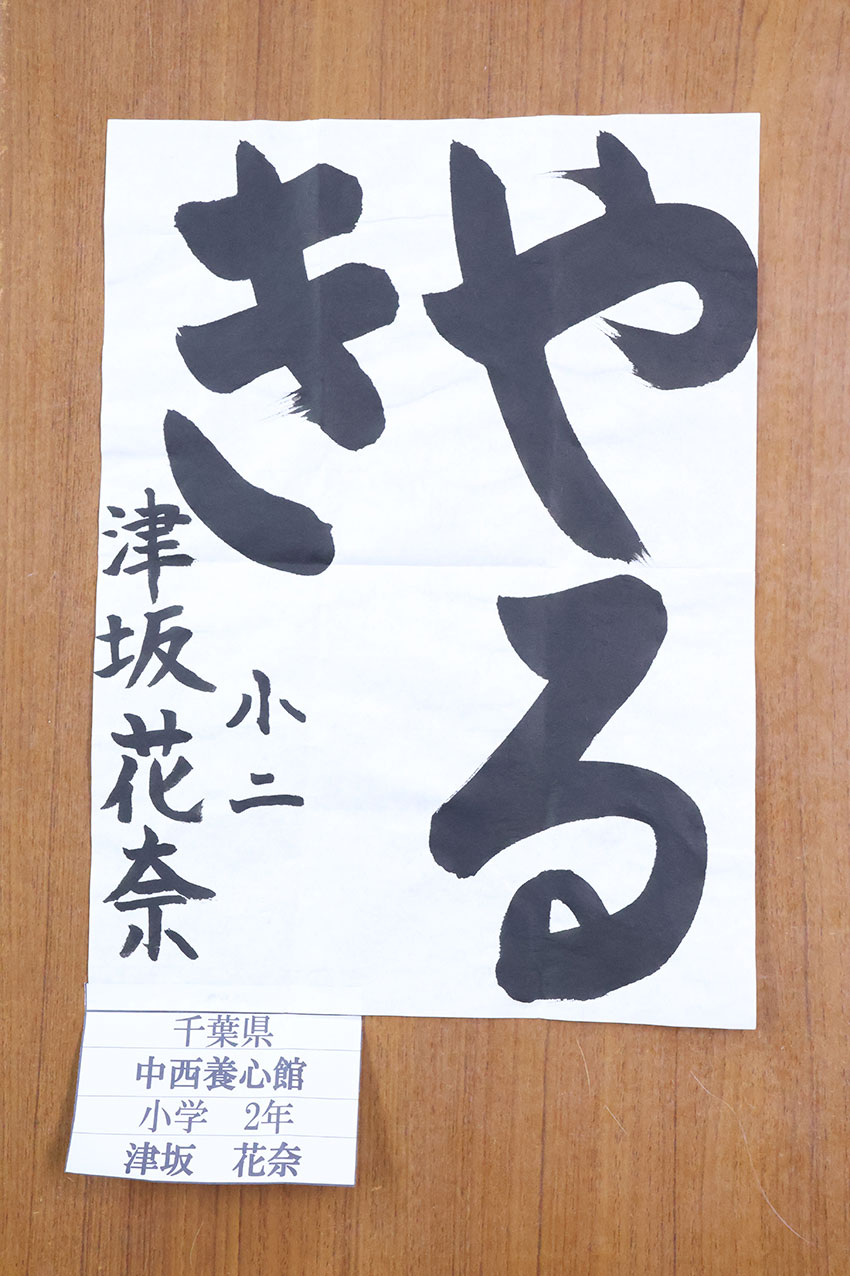 やる
き
小二
津坂花奈
千葉県
中西養心館
小学　2年
津坂　花奈